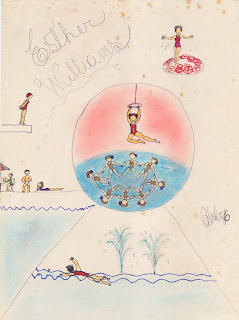 Esther
Williams